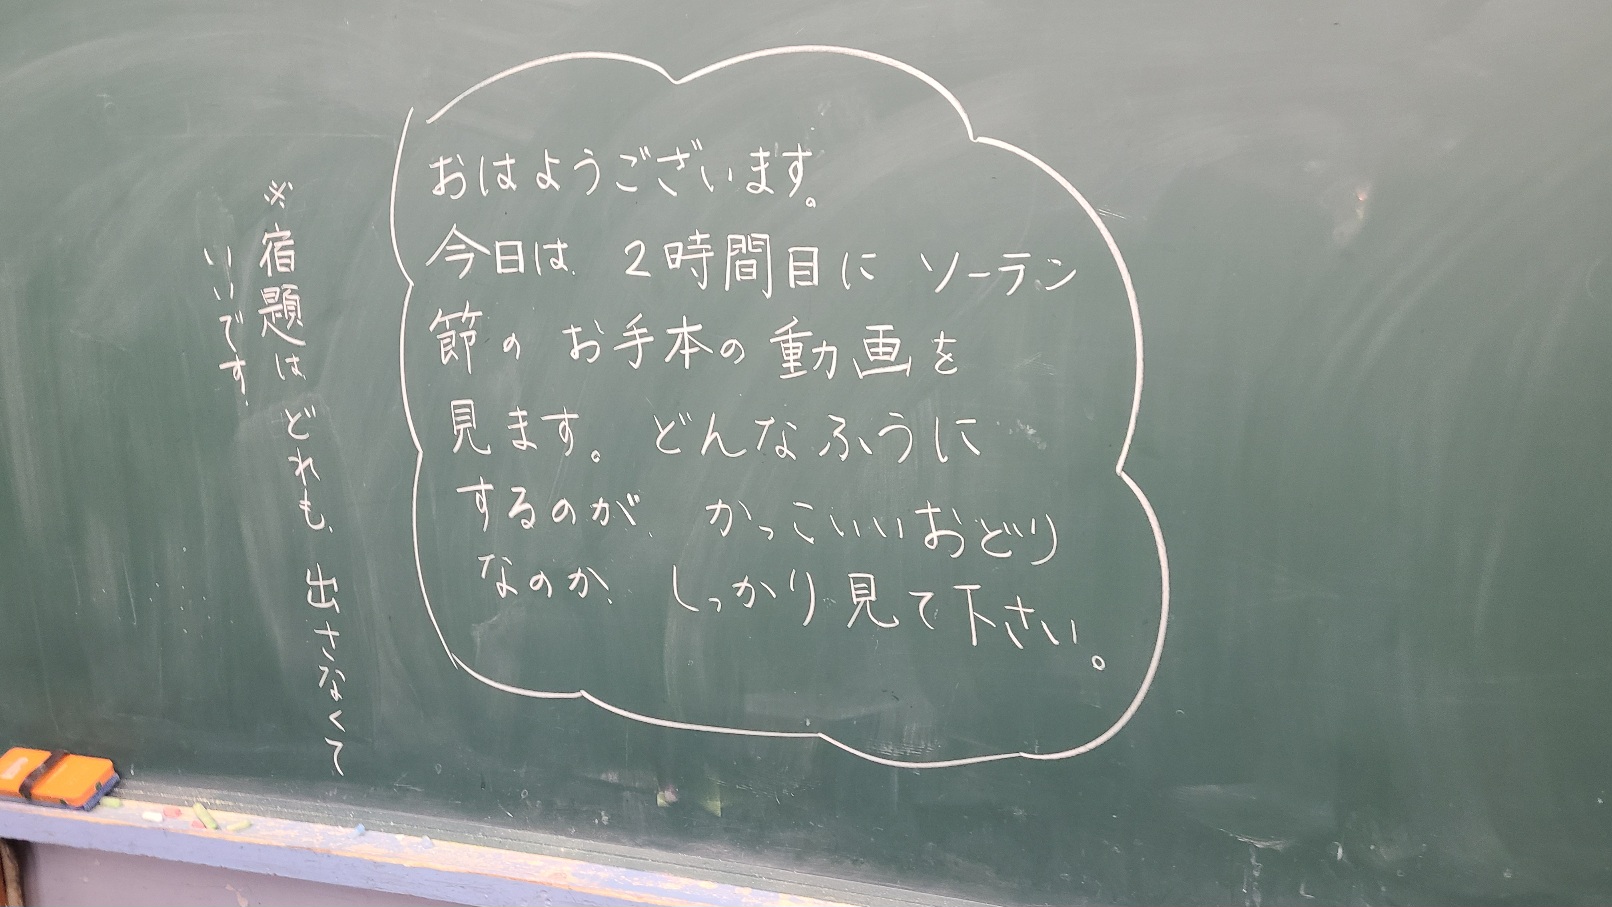 おはようございます。
今日は 2時間目に ソーラン
節の お手本の 動画を
見ます。 どんなふうに
するのが、 かっこいいおどり
なのか、 しっかり見て下さい。
※宿題は どれも、 出さなくて
いいです。